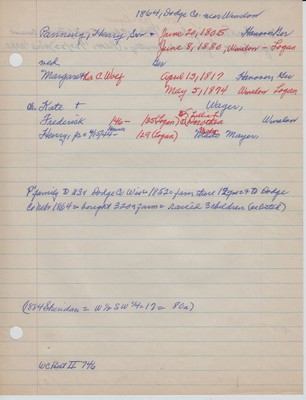 1864, Dodge Co. near Winslow
Panning, Henry Snr * June 20, 1805 Hanover, Ger
June 8, 1880, Winslow - Logan
md. Ger
Margaretha C April 13, 1817 Hanover, Ger
May 5, 1874 Winslow Logan
ch. Kate + Weger,
Frederick 146- 125 (Logan) Dorothea Winslow
Henry, 129 (Logan) Meyer,
P family to USA Dodge Co Wis 1852 = farm there 12 yrs = to Dodge
Co Nebr 1864 = bought 320 a farm = raised 3 children (as listed)
(1884 Sheridan = W½ SW¼-17 = 80a)
WC Part II 746